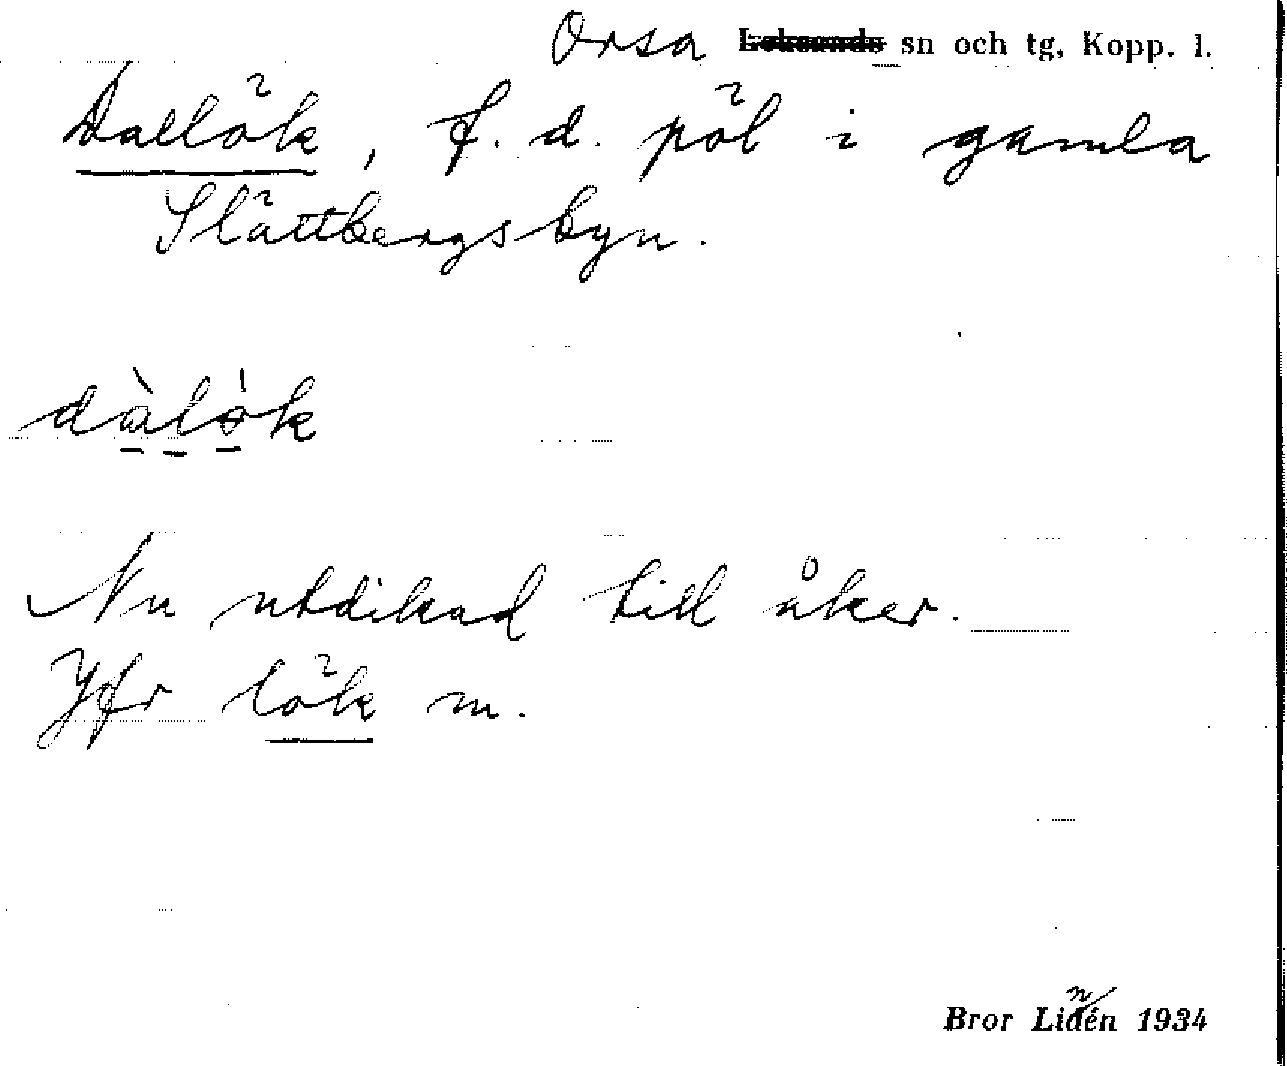 Orsa Leksands sn och tg, Kopp. l.
Dallök, f. d. pöl i gamla
Slättbergsbyn.
dàlók
Nu utdikad till åker.
Jfr lök m.
Bror Lindén 1934